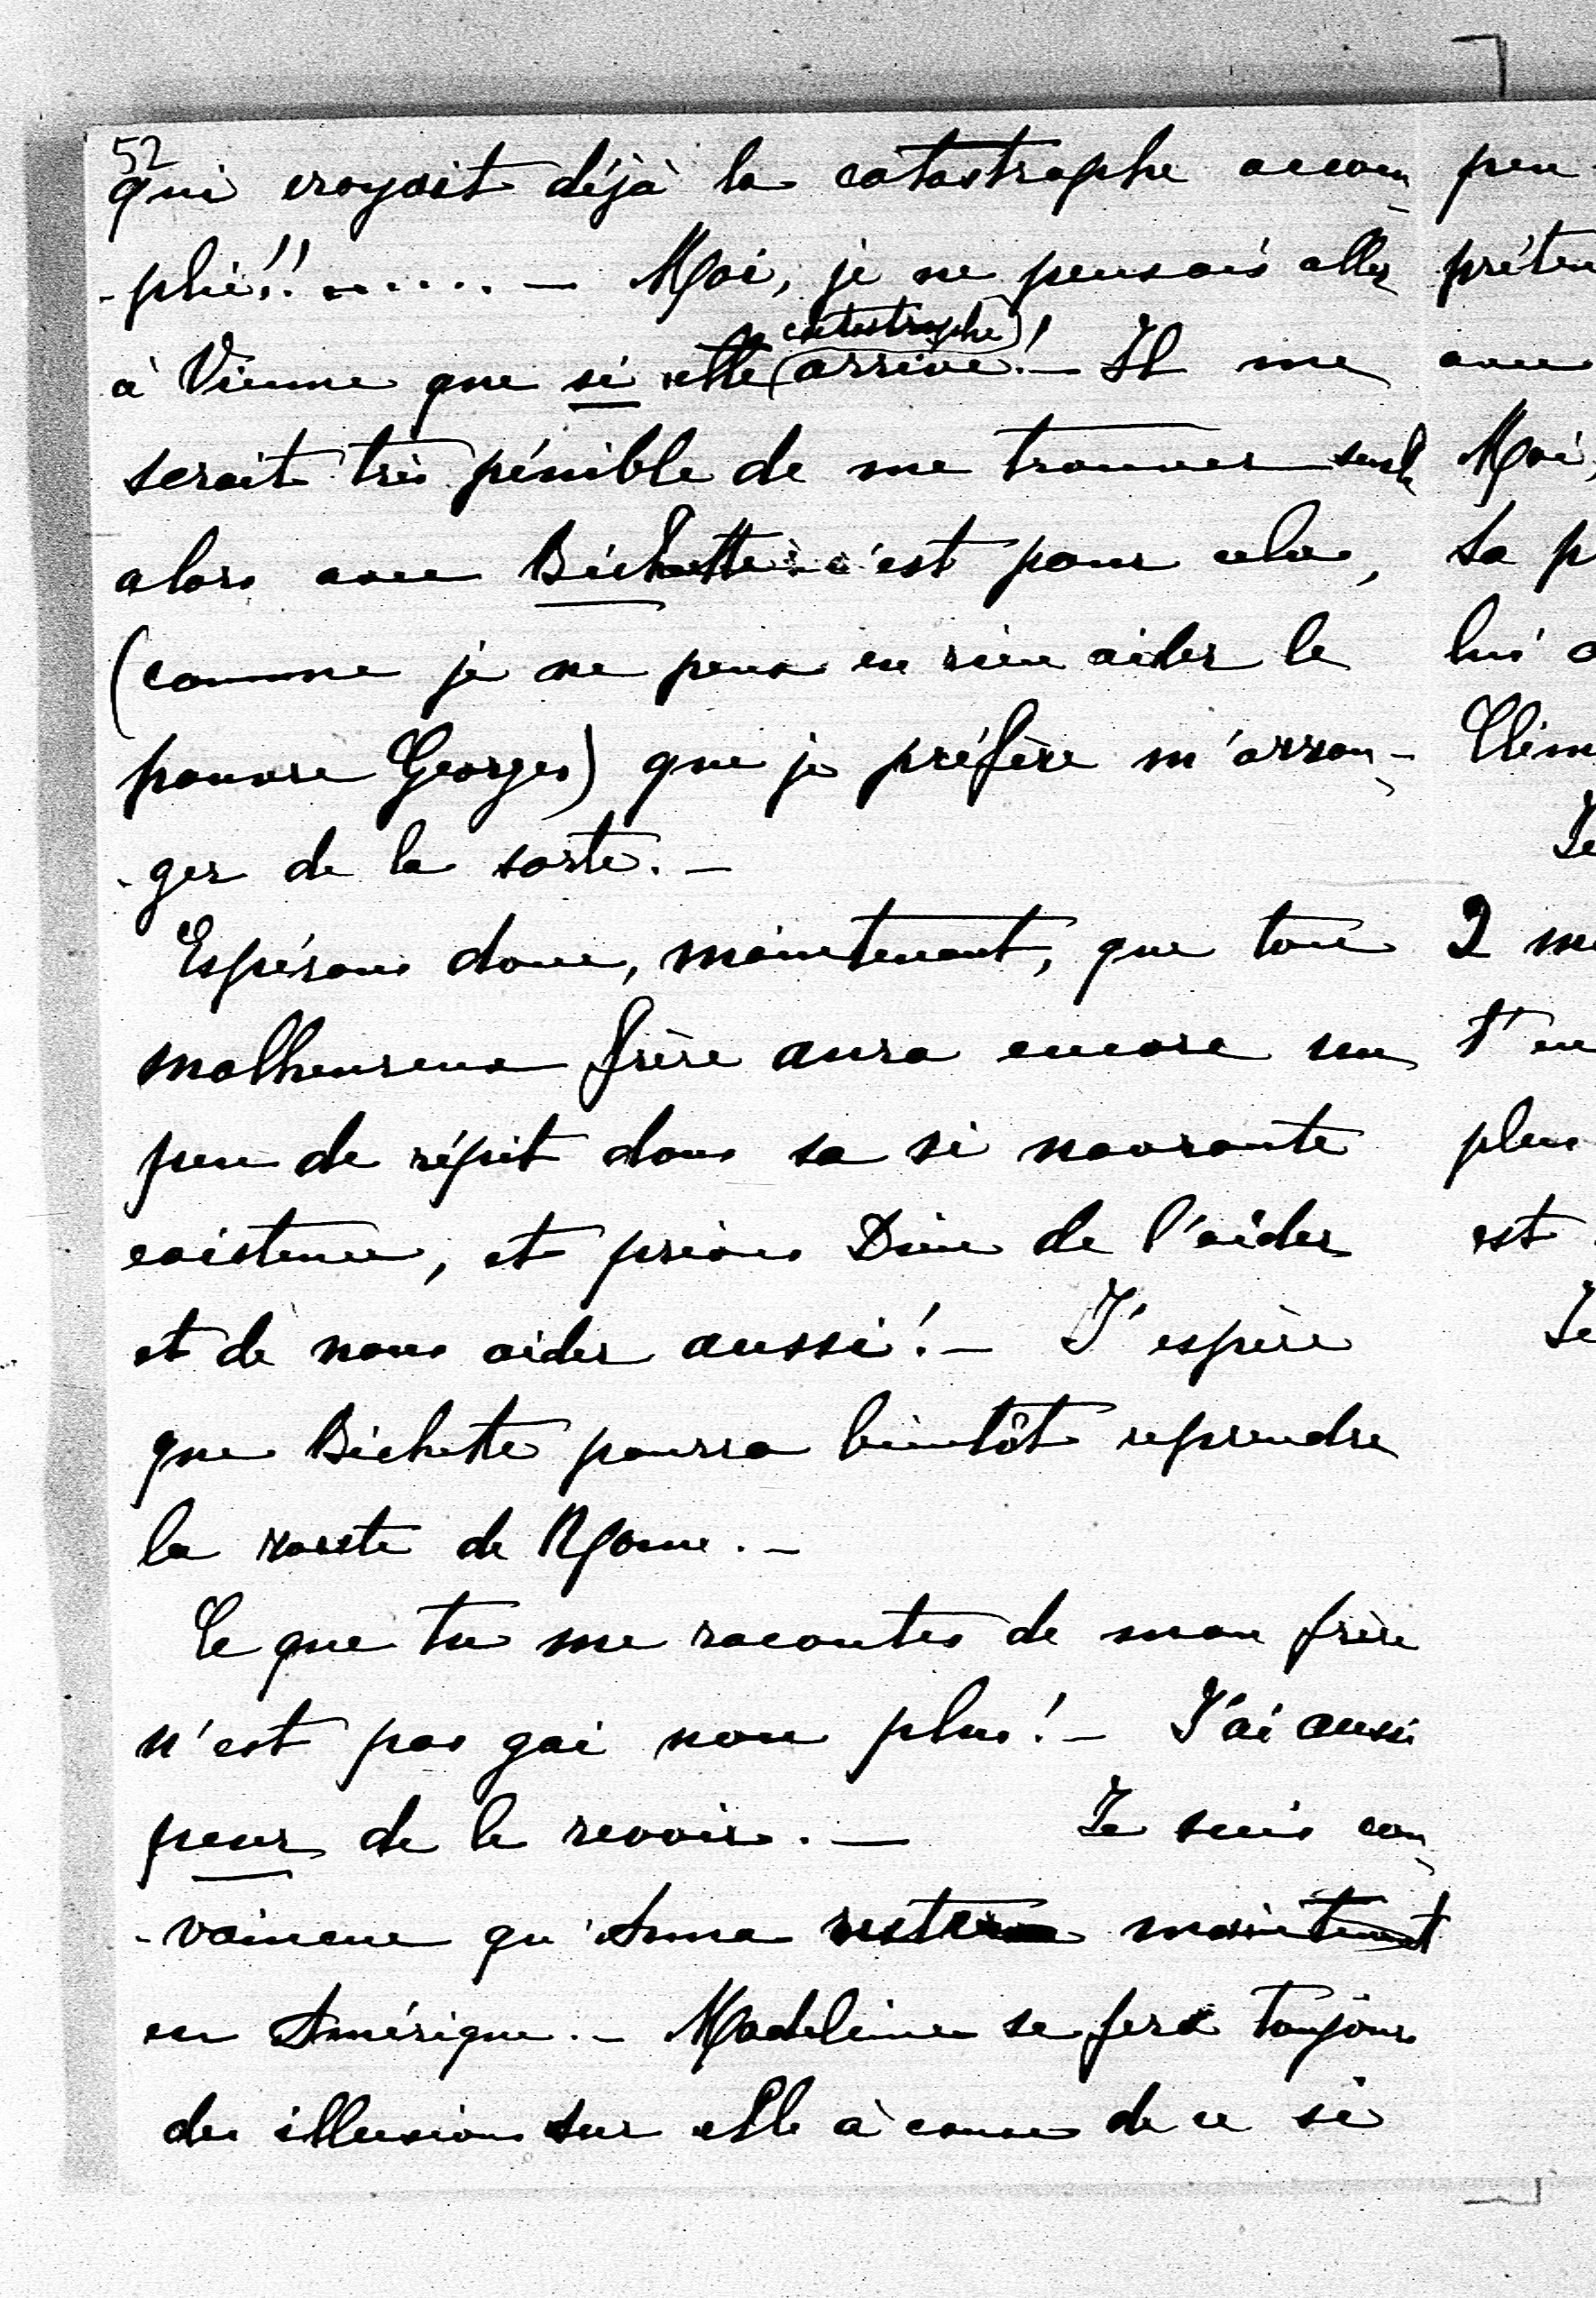 52
qui croyait déjà la catastrophe accom-
-plie!! ...... — Moi, je ne pensais aller
à Vienne que si cette (catastrophe) arrive! — Il me
serait très pénible de me trouver seule
alors avec Bichette: c'est pour cela,
(comme je ne peux en rien aider le
pauvre Georges) que je préfère m'arran-
-ger de la sorte. —
Espérons donc, maintenant, que ton
malheureux frère aura encore un
peu de répit dans sa si navrante
existence, et prions Dieu de l'aider
et de nous aider aussi! — J'espère
que Bichette pourra bientôt reprendre
la route de Rome. —
Ce que tu me racontes de mon frère
n'est pas gai non plus! — J'ai aussi
peur de le revoir. — Je suis con-
-vaincue qu'Anna restera maintenant
en Amérique. — Madeleine se fera toujours
des illusions sur elle à cause de ce si
peu
avec
Moi,
sa p
lui
Je
2
t'en
plus
est
Je